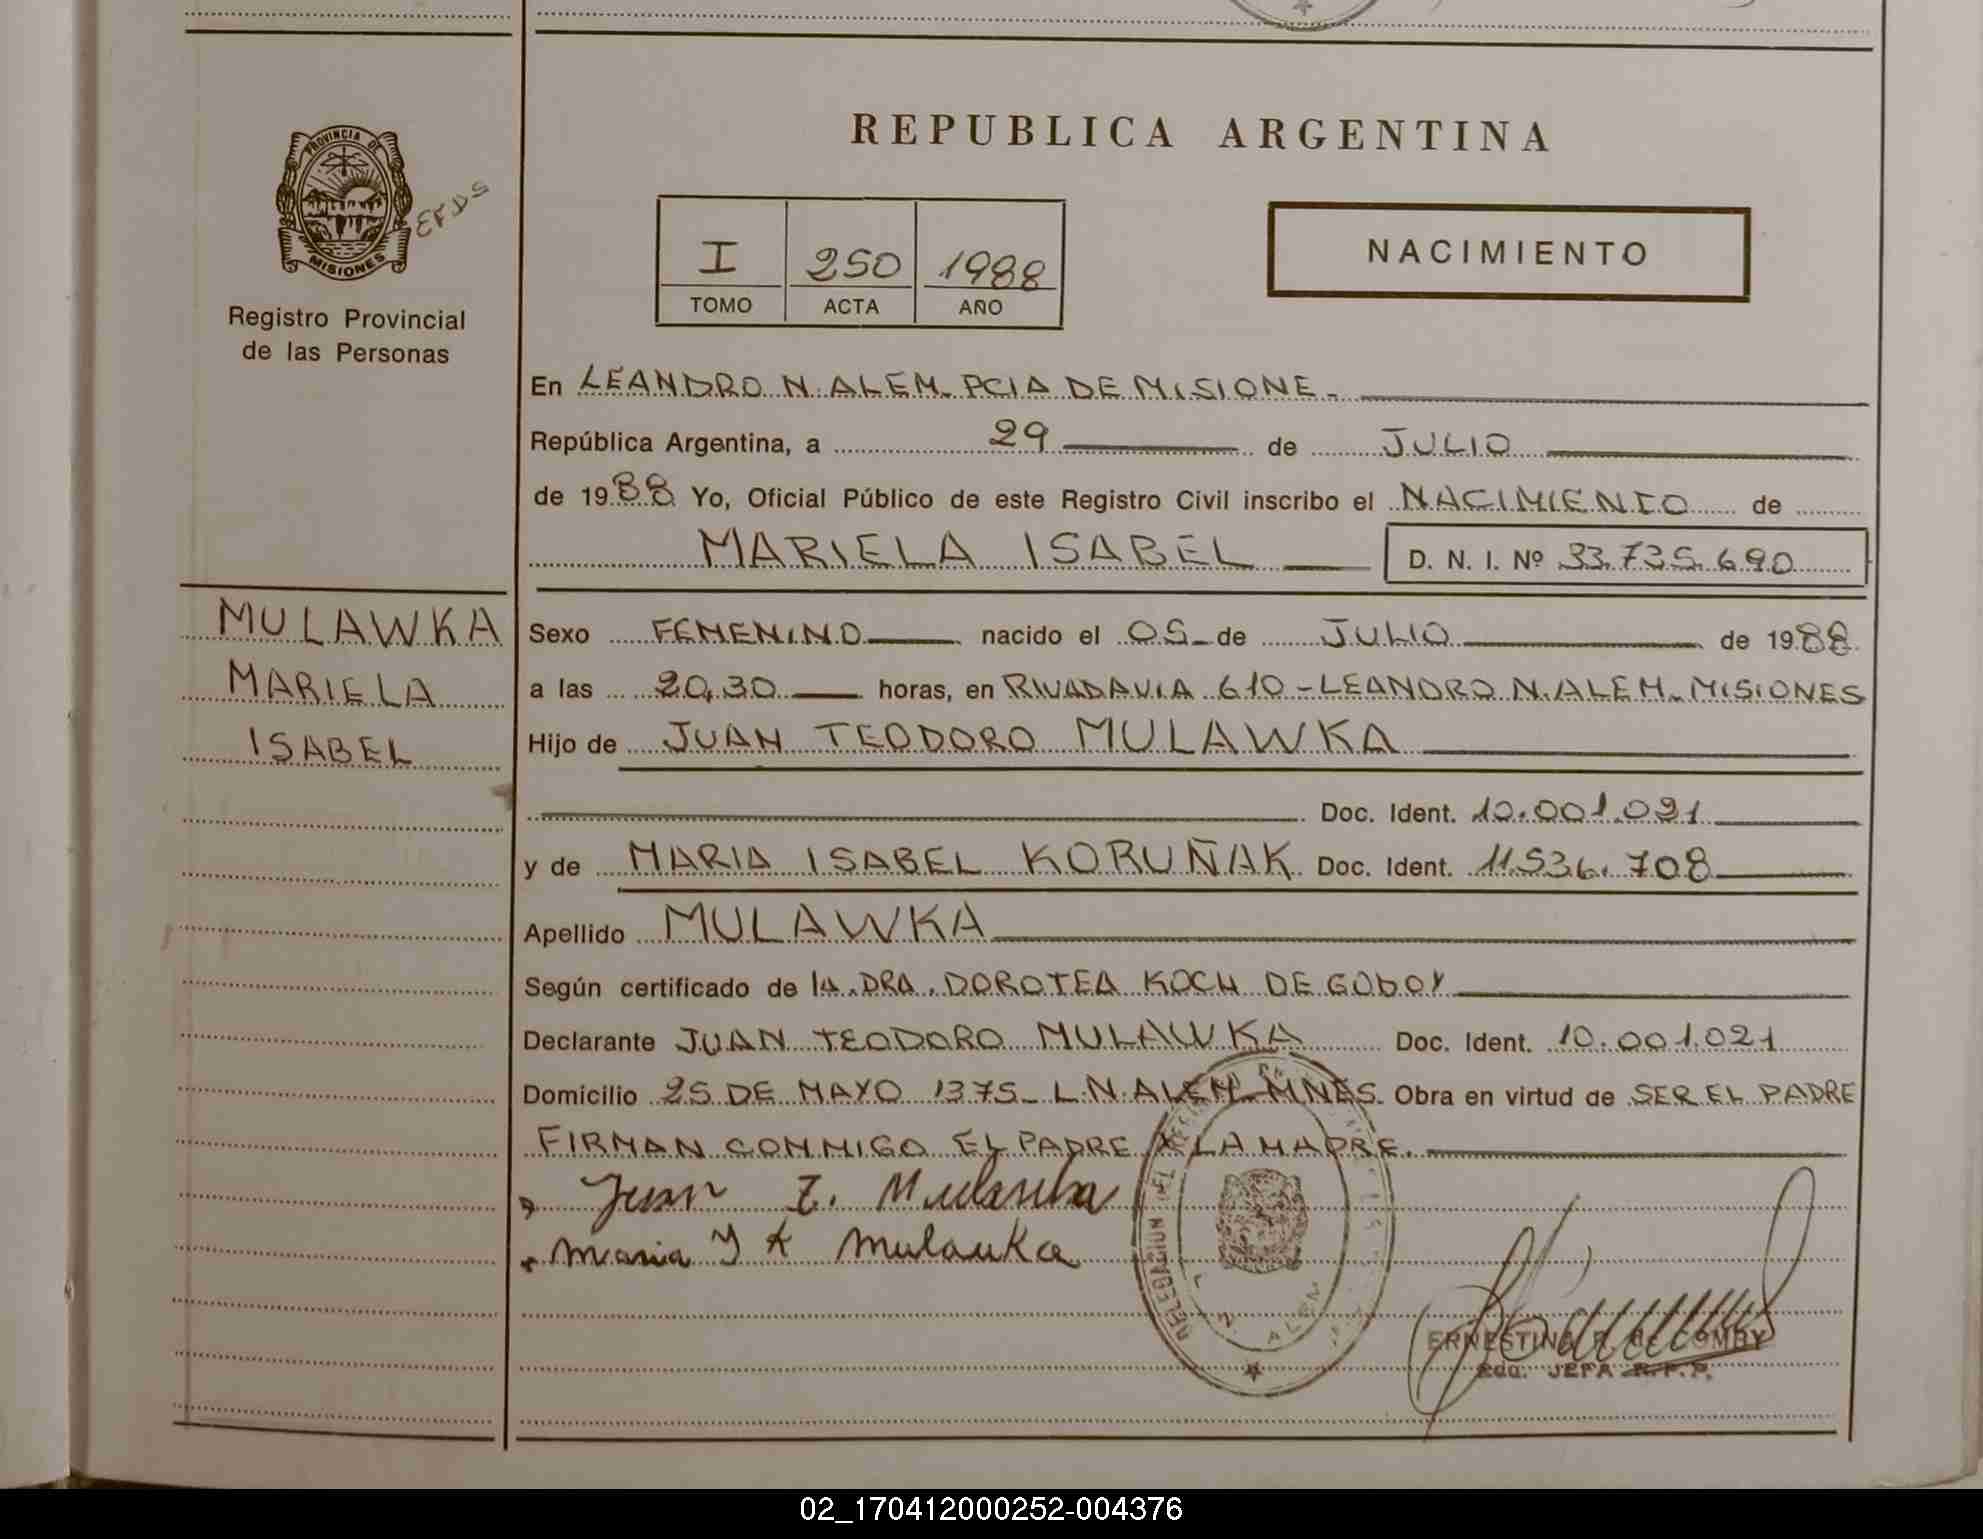 REPUBLICA ARGENTINA
PROVINCIA DE
MISIONES
Registro Provincial
de las Personas
I 250 1988
TOMO ACTA AÑO
NACIMIENTO
En LEANDRO N. ALEM. PCIA DE MISIONE.
República Argentina, a 29 de JULIO
de 1988 Yo, Oficial Público de este Registro Civil inscribo el NACIMIENTO de
MARIELA ISABEL D. N. I. Nº 33.735.690
MULAWKA
MARIELA
ISABEL
Sexo FEMENINO nacido el 05 de JULIO de 1988
a las 20,30 horas, en RIVADAVIA 610 - LEANDRO N. ALEM. MISIONES
Hijo de JUAN TEODORO MULAWKA
Doc. Ident. 10.001.021
y de MARIA ISABEL KORUÑAK Doc. Ident. 11.536.708
Apellido MULAWKA
Según certificado de la DRA. DOROTEA KOCH DE GODOY
Declarante JUAN TEODORO MULAWKA Doc. Ident. 10.001.021
Domicilio 25 DE MAYO 1375 - L.N. ALEM. MNES. Obra en virtud de SER EL PADRE
FIRMAN CONMIGO EL PADRE Y LA MADRE.
Juan T. Mulawka
Maria Y K Mulauka
DELEGACION DEL
L. N. ALEM
ERNESTINA DE COMBY
JEFA R.P.P.
02_170412000252-004376